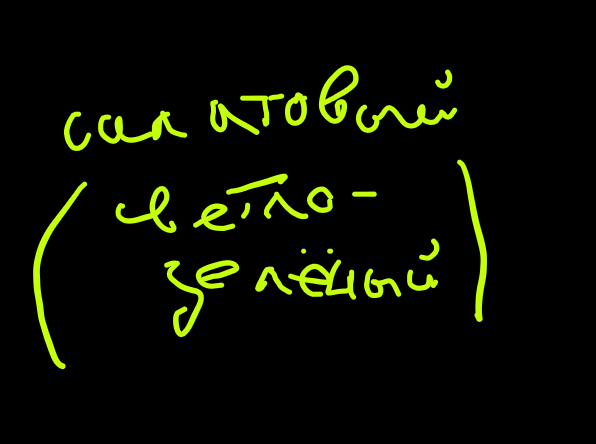 салатовый
(светло-
зелёный)